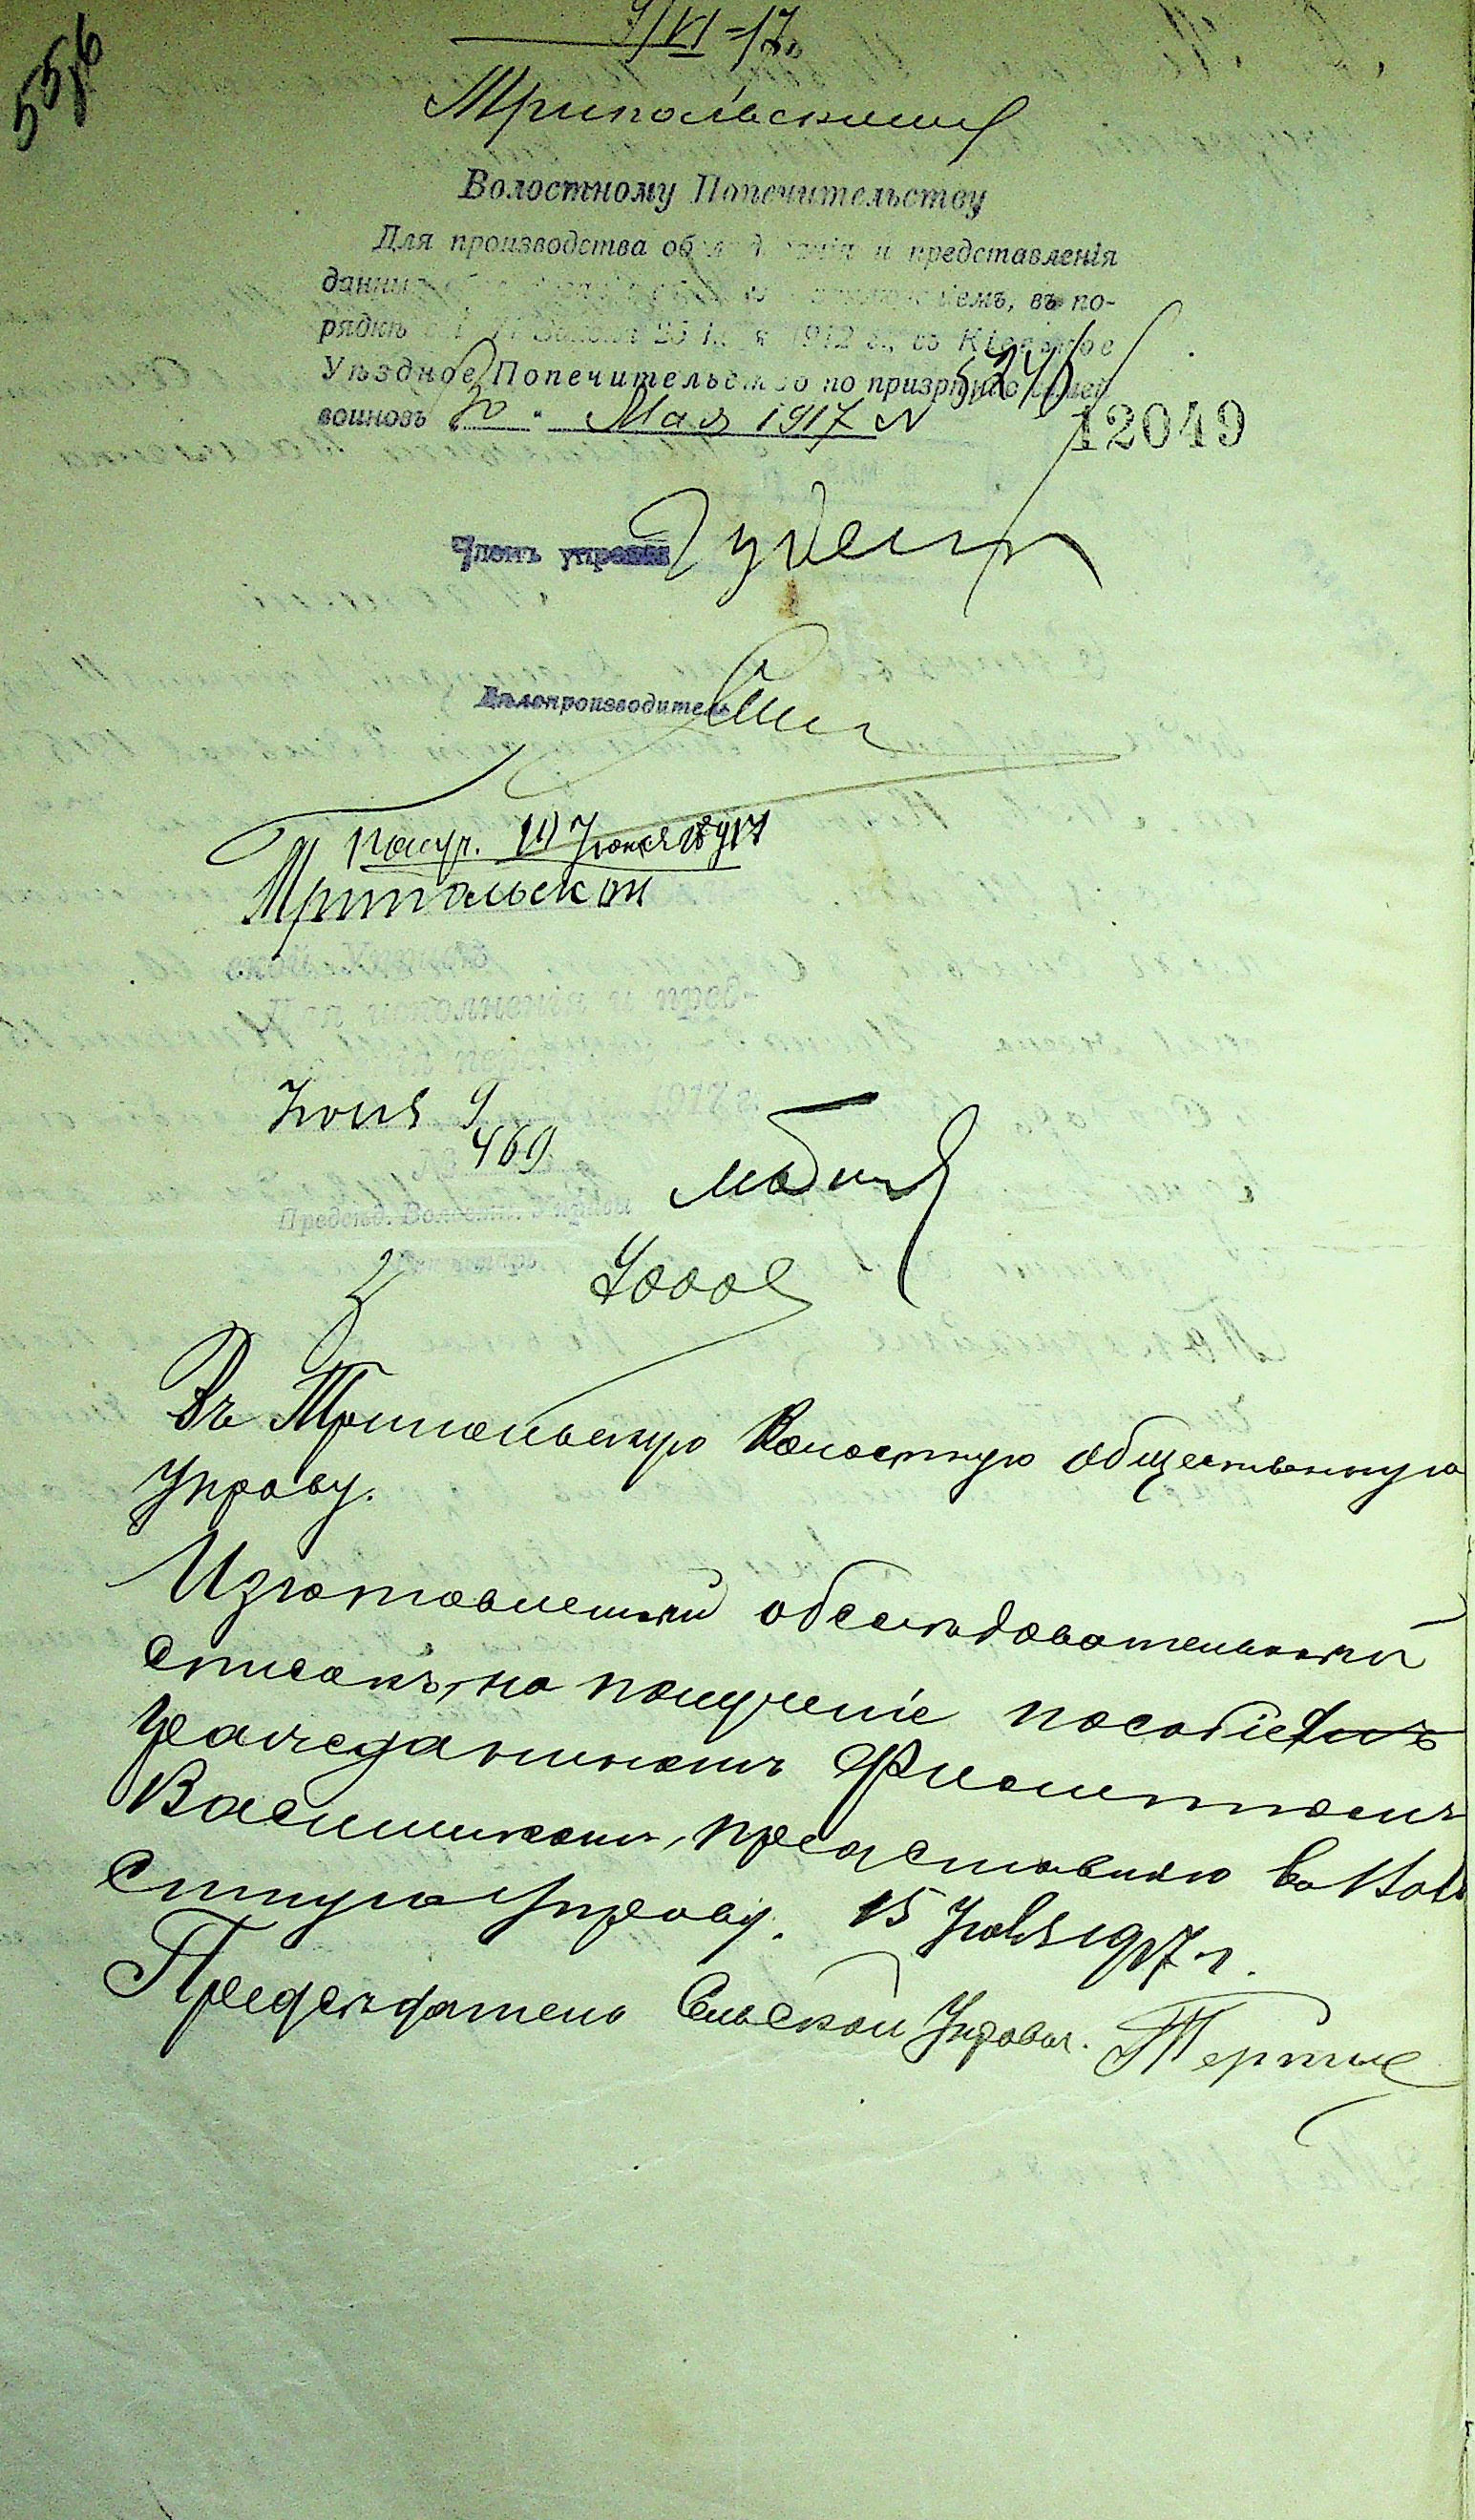 556
9/VI-17
Трипольскому
Волостному Попечительству
Для производства обслѣдованія и представленія
данныхъ въ по-
рядкѣ Закона 25 1912 г., въ Кіевское
Уѣздное Попечительство по призрѣнію семей
воиновъ 30 " Мая 1917 N 5240/12049
Членъ управы
Дѣлопроизводитель
Получ. 10 Іюня 1917
Трипольской
ской Управѣ
Для исполненія и пред-
1917 г.
Іюня 9
№ 469
Предсѣд. Волостн. Управы
Секретарь
Въ Трипольскую Волостную общественную
Управу.
Изготовленный обслѣдовательный
списокъ, на полученіе пособіе
гражданиномъ Филиппомъ
Василенкомъ, представляю въ Воло
стную Управу. 15 Іюня 1917 г.
Предсѣдатель Сельской Управы.